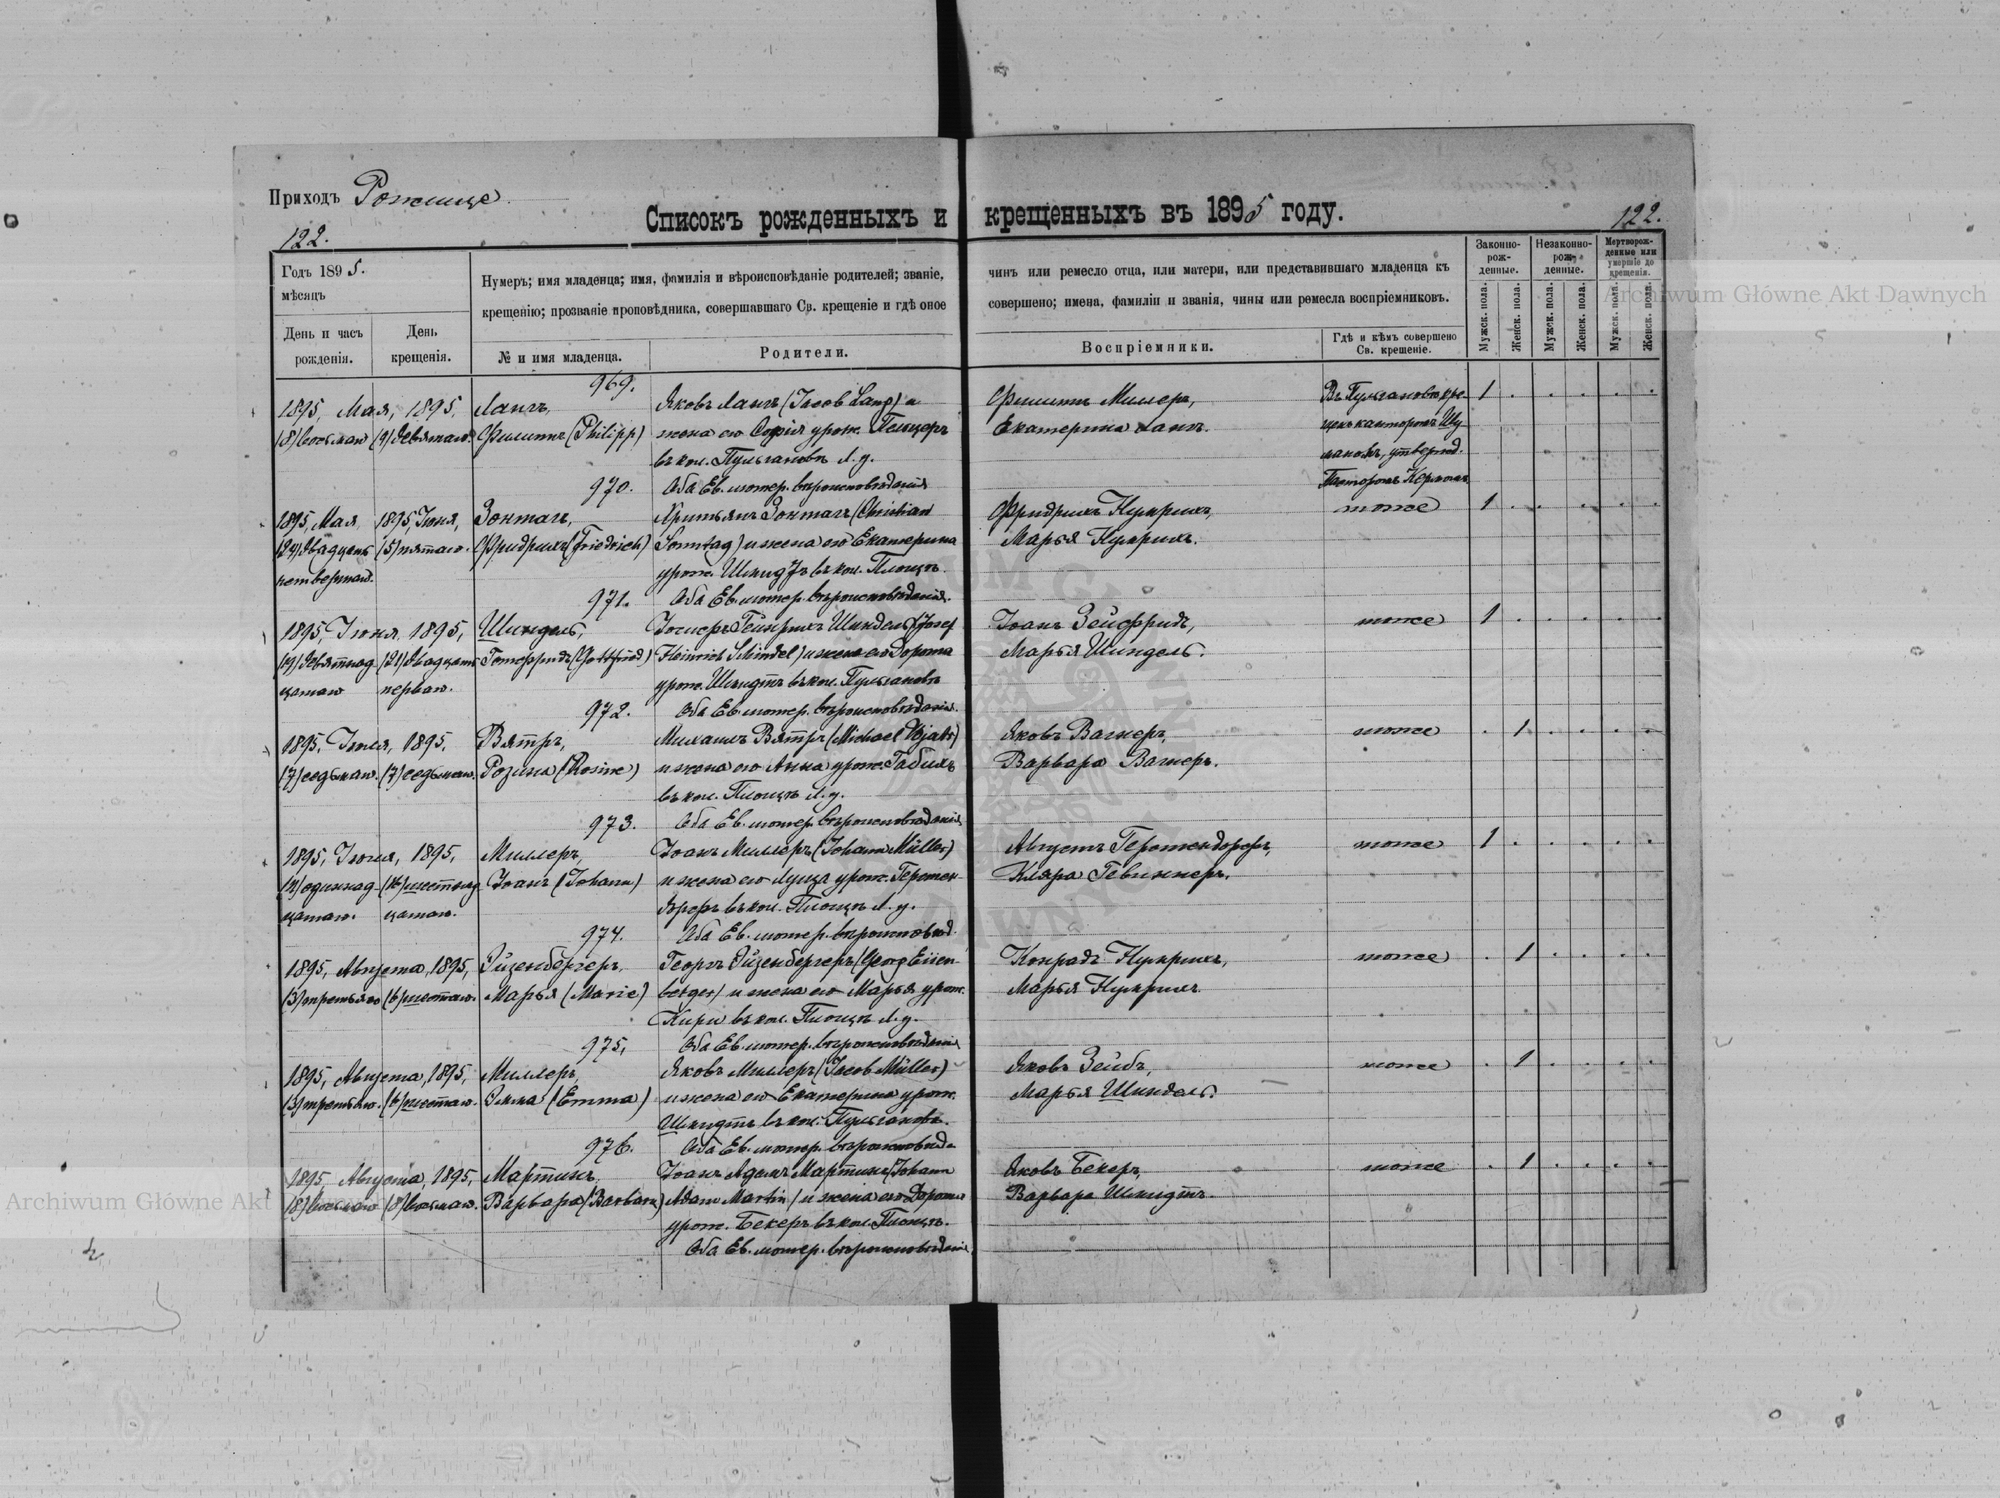 Приходъ Рожище.
Списокъ рожденныхъ и крещенныхъ въ 1895 году.
122.
122.
Годъ 1895.
мѣсяцъ
День и часъ рожденія.
День крещенія.
Нумеръ; имя младенца; имя, фамилія и вѣроисповѣданіе родителей; званіе,
чинъ или ремесло отца, или матери, или представившаго младенца къ
крещенію; прозваніе проповѣдника, совершавшаго Св. крещеніе и гдѣ оное
совершено; имена, фамиліи и званія, чины или ремесла воспріемниковъ.
№ и имя младенца.
Родители.
Воспріемники.
Гдѣ и кѣмъ совершено
Св. крещеніе.
Законно-
рож-
денные.
Незаконно-
рож-
денные.
Мертворож-
денные или
умершіе до
крещенія.
Мужск. пола.
Женск. пола.
Мужск. пола.
Женск. пола.
Мужск. пола.
Женск. пола.
969.
1895, Мая, 1895, Лангъ, Яковъ Лангъ (Jacob Lang) и Филиппъ Миллеръ, 1
(8) восьмаго (9) девятаго Филиппъ (Philipp) жена его Софія урож. Пельцеръ Екатерина Лангъ.
въ кол. Пульгановъ Л. у.
970. Оба Ев. лютер. вѣроисповѣданія
1895, Мая 1895, Іюня, Зонтагъ, Христьянъ Зонтагъ (Christian Фридрихъ Кункрихъ, тоже 1
(24) двадцать (5) пятаго. Фридрихъ (Friedrich) Sonntag) и жена его Екатерина Марья Кункрихъ.
четвертаго. урож. Шмидтъ въ кол. Площъ.
971. Оба Ев. лютер. вѣроисповѣданія.
1895, Іюня 1895, Шиндель, Іосифъ Гейнрихъ Шиндель (Josef Іоанъ Зейфридъ, тоже 1
(19) девятнад (21) двадцать Готфридъ (Gottfried) Heinrich Schindel) и жена его Дорота Марья Шиндель.
цатаго перваго. урож. Шмидтъ въ кол. Пульгановъ
972. Оба Ев. лютер. вѣроисповѣданія.
1895, Іюля, 1895, Вятръ, Михаилъ Вятръ (Michael Wjatr) Яковъ Вагнеръ, тоже 1
(7) седьмаго. (7) седьмаго. Розина (Rosine) и жена его Анна урож. Габихъ Варвара Вагнеръ.
въ кол. Площъ Л. у.
973. Оба Ев. лютер. вѣроисповѣданія
1895, Іюля, 1895, Миллеръ, Іоанъ Миллеръ (Johann Müller) Августъ тоже 1
(11) одиннад (16) шестнад Іоанъ (Johann) и жена его Луиза урож. Клара
цатаго. цатаго. въ кол. Площъ Л. у.
974. Оба Ев. лютер. вѣроисповѣд.
1895, Августа, 1895, Эйзенбергеръ, Георгъ Эйзенбергеръ (Georg Eisen Конрадъ Кункрихъ, тоже 1
(3) третьяго (6) шестаго. Марья (Marie) berger) и жена его Марья урож. Марья Кункрихъ
въ кол. Площъ Л. у.
975. Оба Ев. лютер. вѣроисповѣданія
1895, Августа, 1895, Миллеръ, Яковъ Миллеръ (Jacob Müller) Яковъ Зейбъ, тоже 1
(3) третьяго. (6) шестаго. Эмма (Emma) и жена его Екатерина урож. Марья Шиндель.
Шмидтъ въ кол. Пульгановъ.
976. Оба Ев. лютер. вѣроисповѣд
1895, Августа, 1895, Мартинъ, Іоанъ Адамъ Мартинъ (Johann Яковъ Бекеръ, тоже 1
(8) восьмаго (8) восьмаго. Варвара (Barbara) Adam Martin) и жена его Дорота Варвара Шмидтъ.
урож. Бекеръ въ кол. Площъ.
Оба Ев. лютер. вѣроисповѣданія
Archiwum Główne Akt Dawnych
Archiwum Główne Akt Dawnych